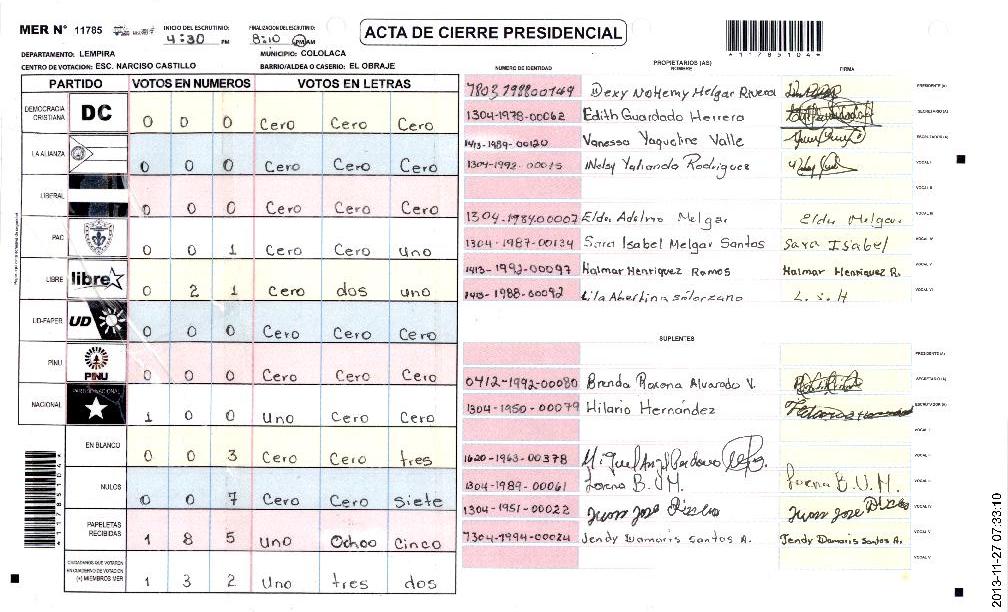 MER Nº 11785 INICIO DEL ESCRUTINIO: 4:30 PM FINALIZACION DEL ESCRUTINIO: 8:10 PM AM
ACTA DE CIERRE PRESIDENCIAL
*11785104*
DEPARTAMENTO: LEMPIRA MUNICIPIO: COLOLACA
CENTRO DE VOTACION: ESC. NARCISO CASTILLO BARRIO/ALDEA O CASERIO: EL OBRAJE
PARTIDO VOTOS EN NUMEROS VOTOS EN LETRAS
DEMOCRACIA CRISTIANA DC 0 0 0 Cero Cero Cero
LA ALIANZA 0 0 0 Cero Cero Cero
LIBERAL 0 0 0 Cero Cero Cero
PAC 0 0 1 Cero Cero uno
LIBRE libre 0 2 1 Cero dos uno
UD-FAPER UD 0 0 0 Cero Cero Cero
PINU PINU 0 0 0 Cero Cero Cero
NACIONAL PARTIDO NACIONAL 1 0 0 Uno Cero Cero
EN BLANCO 0 0 3 Cero Cero tres
NULOS 0 0 7 Cero Cero Siete
PAPELETAS RECIBIDAS 1 8 5 Uno Ochoo Cinco
CIUDADANOS QUE VOTARON EN CUADERNO DE VOTACION (+) MIEMBROS MER 1 3 2 Uno tres dos
PROPIETARIOS (AS)
NUMERO DE IDENTIDAD NOMBRE FIRMA
Dexy Nohemy Melgar Rivera PRESIDENTE (A)
1304-1978-00062 Edith Guardado Herrera SECRETARIO (A)
1413-1989-00120 Vanessa Yaqueline Valle ESCRUTADOR (A)
1304-1992-00015 Nelsy Yolianda Rodriguez VOCAL I
VOCAL II
1304-1984-00007 Eldu Adelmo Melgar Eldu Melgar VOCAL III
1304-1987-00134 Sara Isabel Melgar Santos Sara Isabel VOCAL IV
1413-1992-00097 Halmar Henriquez Ramos Halmar Henriquez R. VOCAL V
1413-1988-00092 Lila Abertina Solorzano L. S. H VOCAL VI
SUPLENTES
PRESIDENTE (A)
0412-1992-00080 Brenda Roxona Alvarado V. SECRETARIO (A)
1304-1950-00079 Hilario Hernández ESCRUTADOR (A)
VOCAL I
1620-1963-00378 Miguel Angel
1304-1989-00061 Lorena B. U. M. Lorena B. U. M.
1304-1951-00022 Juan Jose Juan Jose
1304-1994-00024 Jendy Damaris Santos A. Jendy Damaris Santos A. VOCAL V
*11785104*
2013-11-27 07:33:10